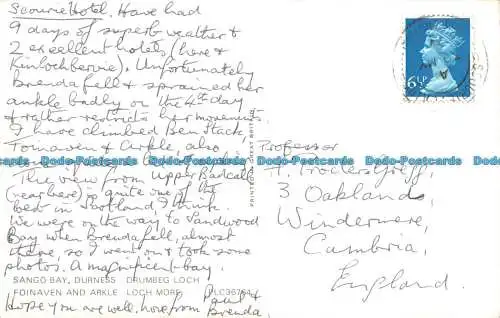 Scourie Hotel. Have had
9 days of superb weather &
2 excellent hotels (here &
Kinlochbervie). Unfortunately
Brenda fell & sprained her
ankle badly on the 4th day
& rather restricts her movements.
I have climbed Ben Stack
Foinaven & Arkle, also
The view from Upper Badcall
(near here) is quite one of the
best in Scotland I think.
We were on the way to Sandwood
Bay when Brenda fell, almost
there, so I went on & took some
photos. A magnificent bay.
SANGO BAY, DURNESS DRUMBEG LOCH
FOINAVEN AND ARKLE LOCH MORE PLC36764
Hope you are well, love from Paul &
Brenda
6½P
PRINTED IN GREAT BRITAIN
Professor
3 Oaklands
Windermere,
Cumbria,
England.
Postcards-DACS.co.uk